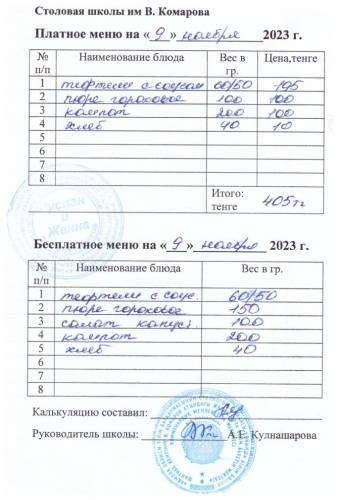 Столовая школы им В. Комарова
Платное меню на « 9 » ноября 2023 г.
№ п/п Наименование блюда Вес в гр. Цена,тенге
1 тефтели с соусом 60/50 195
2 пюре гороховое 100 100
3 компот 200 100
4 хлеб 40 10
5
6
7
8
Итого: тенге 405тг
Бесплатное меню на « 9 » ноября 2023 г.
№ п/п Наименование блюда Вес в гр.
1 тефтели с соус. 60/50
2 пюре гороховое 150
3 салат капус. 100
4 компот 200
5 хлеб 40
6
7
8
Калькуляцию составил:
Руководитель школы: А.Е. Кулнашарова